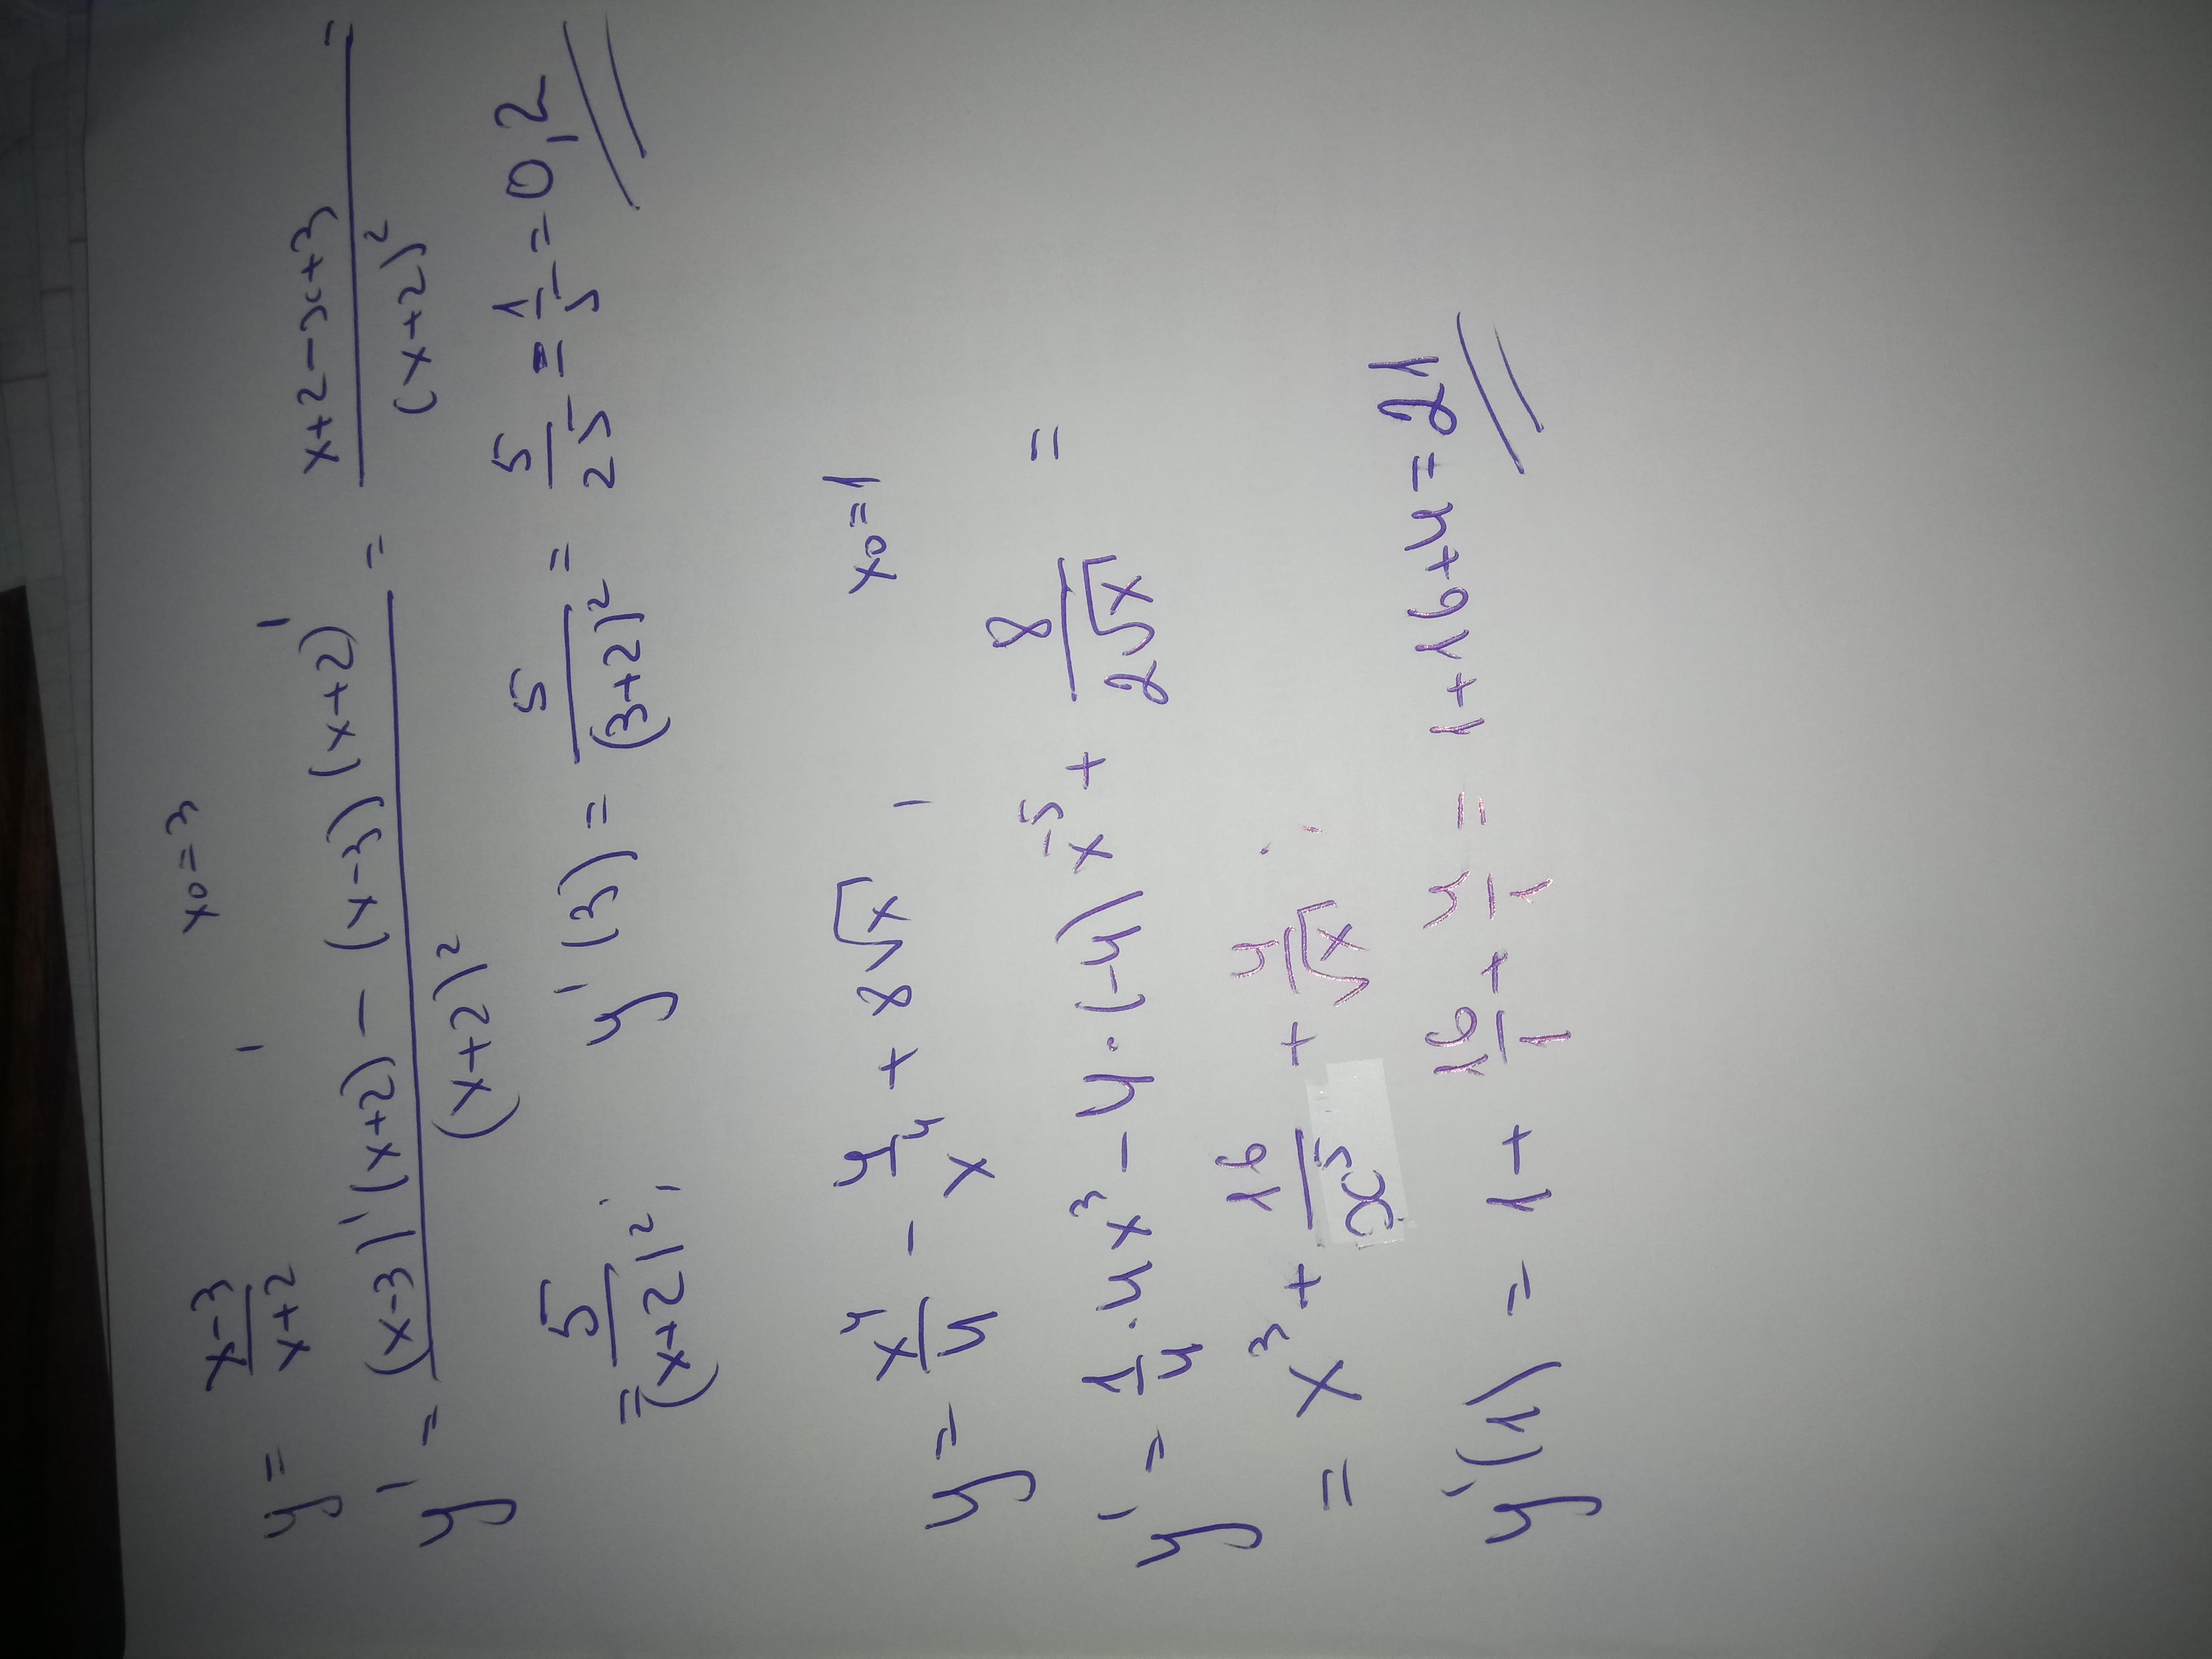 y = (x-3)/(x+2), x₀=3
y' = ((x-3)'(x+2) - (x-3)(x+2)')/(x+2)² = (x+2-x+3)/(x+2)² =
= 5/(x+2)²; y'(3) = 5/(3+2)² = 5/25 = 1/5 = 0,2
y = x⁴/4 - 4/x⁴ + 8√x, x₀=1
y' = 1/4·4x³ - 4·(-4)x⁻⁵ + 8/(2√x) =
= x³ + 16/x⁵ + 4/√x;
y'(1) = 1 + 16/1 + 4/1 = 1+16+4=21